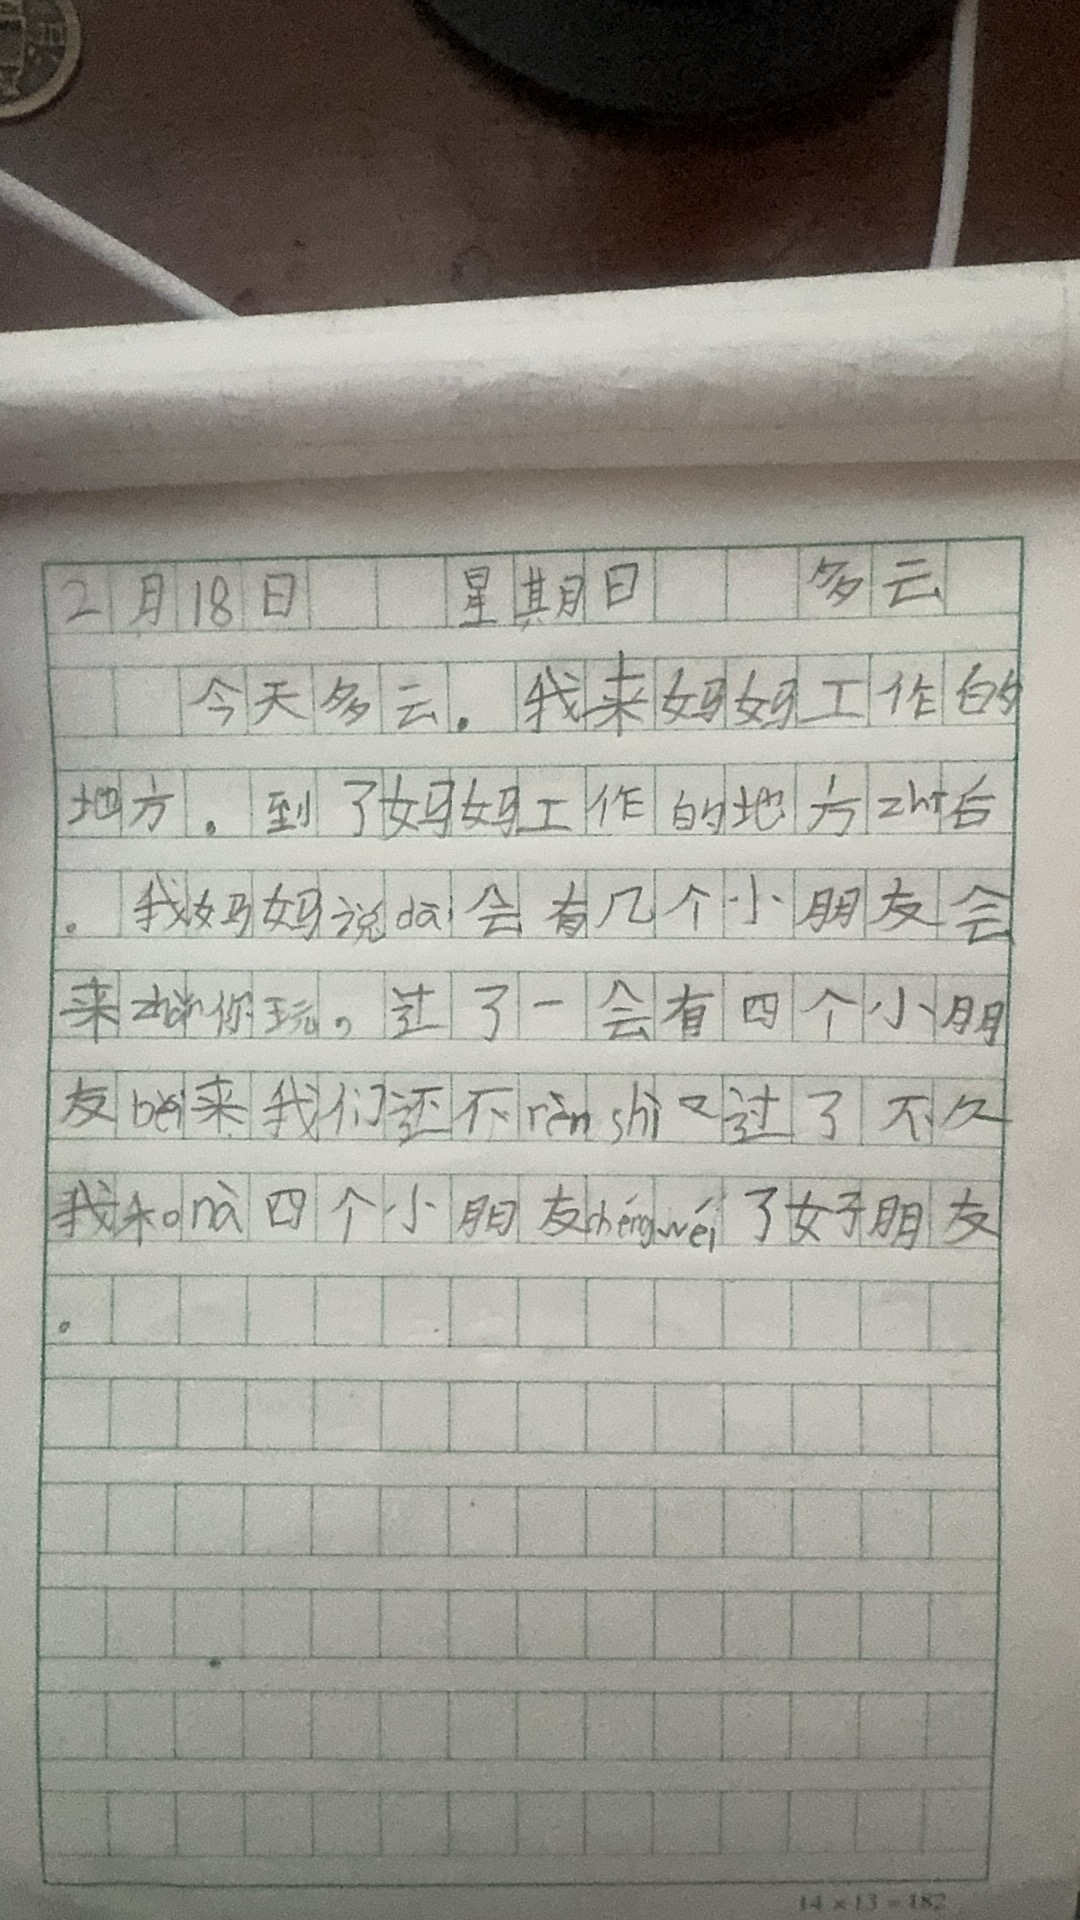 2月18日 星期日 多云
今天多云。我来妈妈工作的
地方。到了妈妈工作的地方zhī后
。我妈妈说dāi会有几个小朋友会
来 你玩。过了一会有四个小朋
友běi来我们还不rèn shi又过了不久
我和nà四个小朋友chéng wéi了好朋友
。
14×13=182